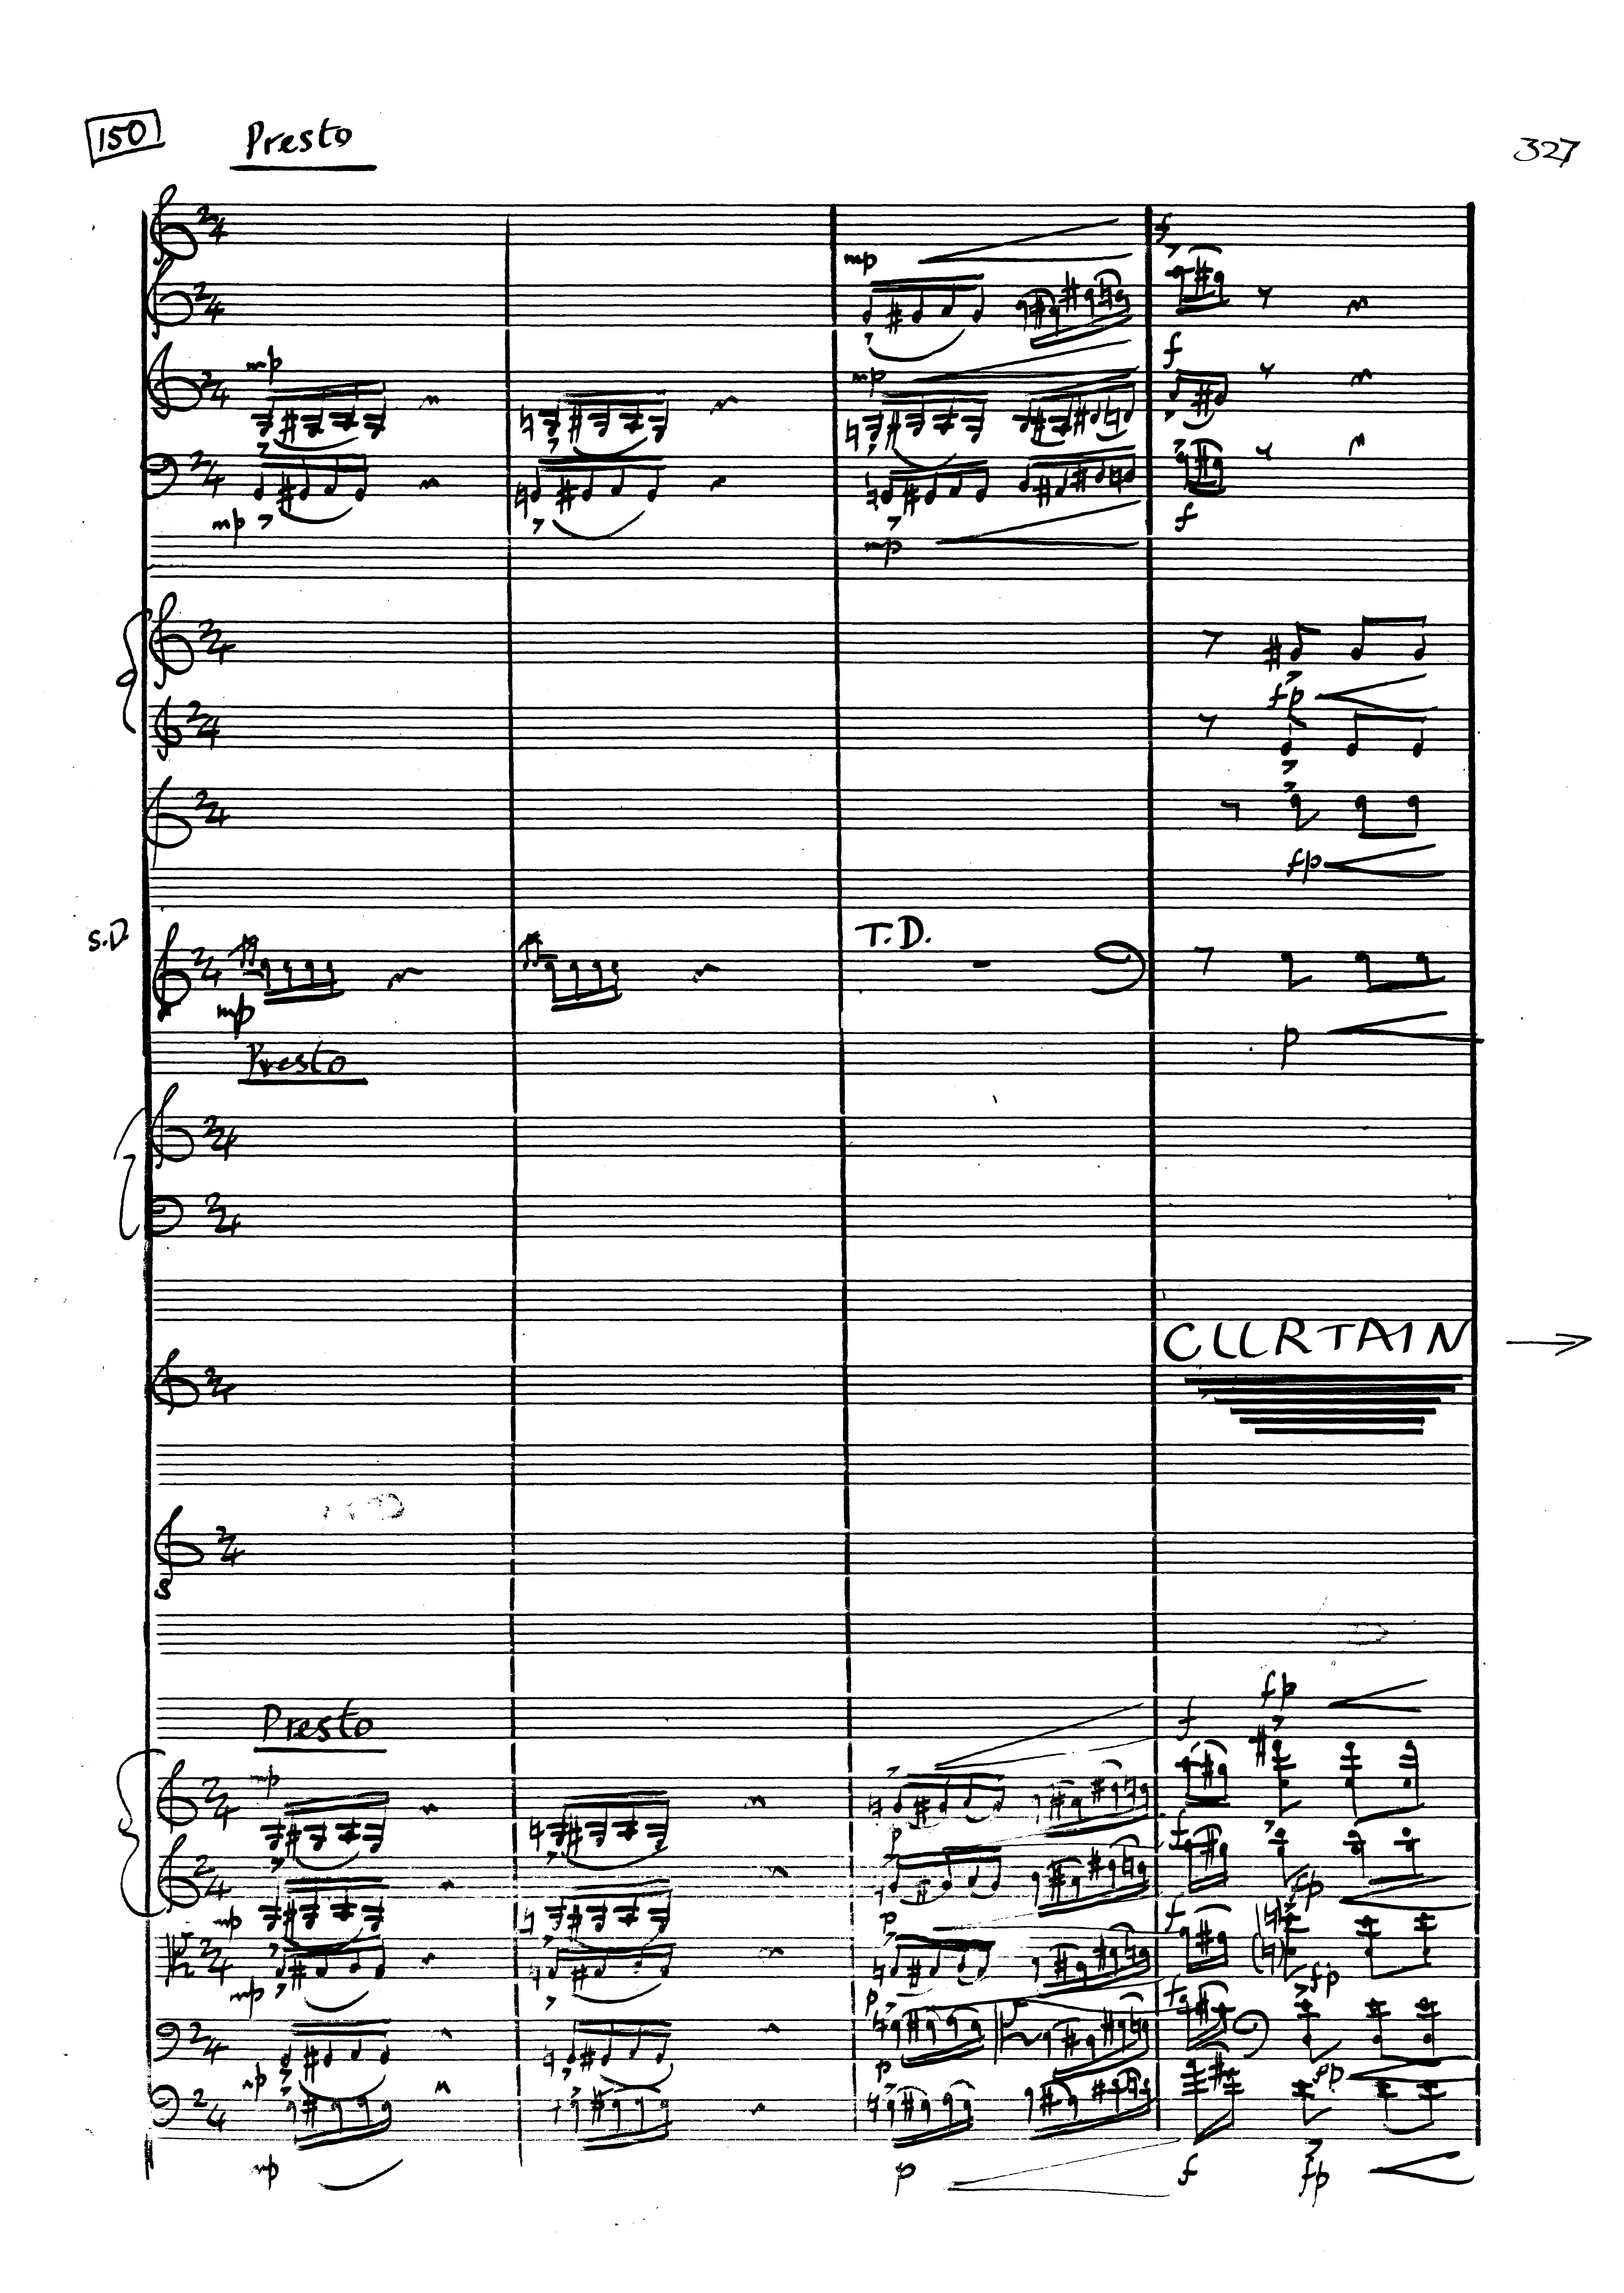 150 Presto 327
f
mp
mp f
mp
mp f
mp
fp
fp
S.D. T.D.
mp
p
Presto
CURTAIN →
8
fp
Presto f
mp
p f
fp
mp p f
mp fp
p f
mp p fp
mp p f fp